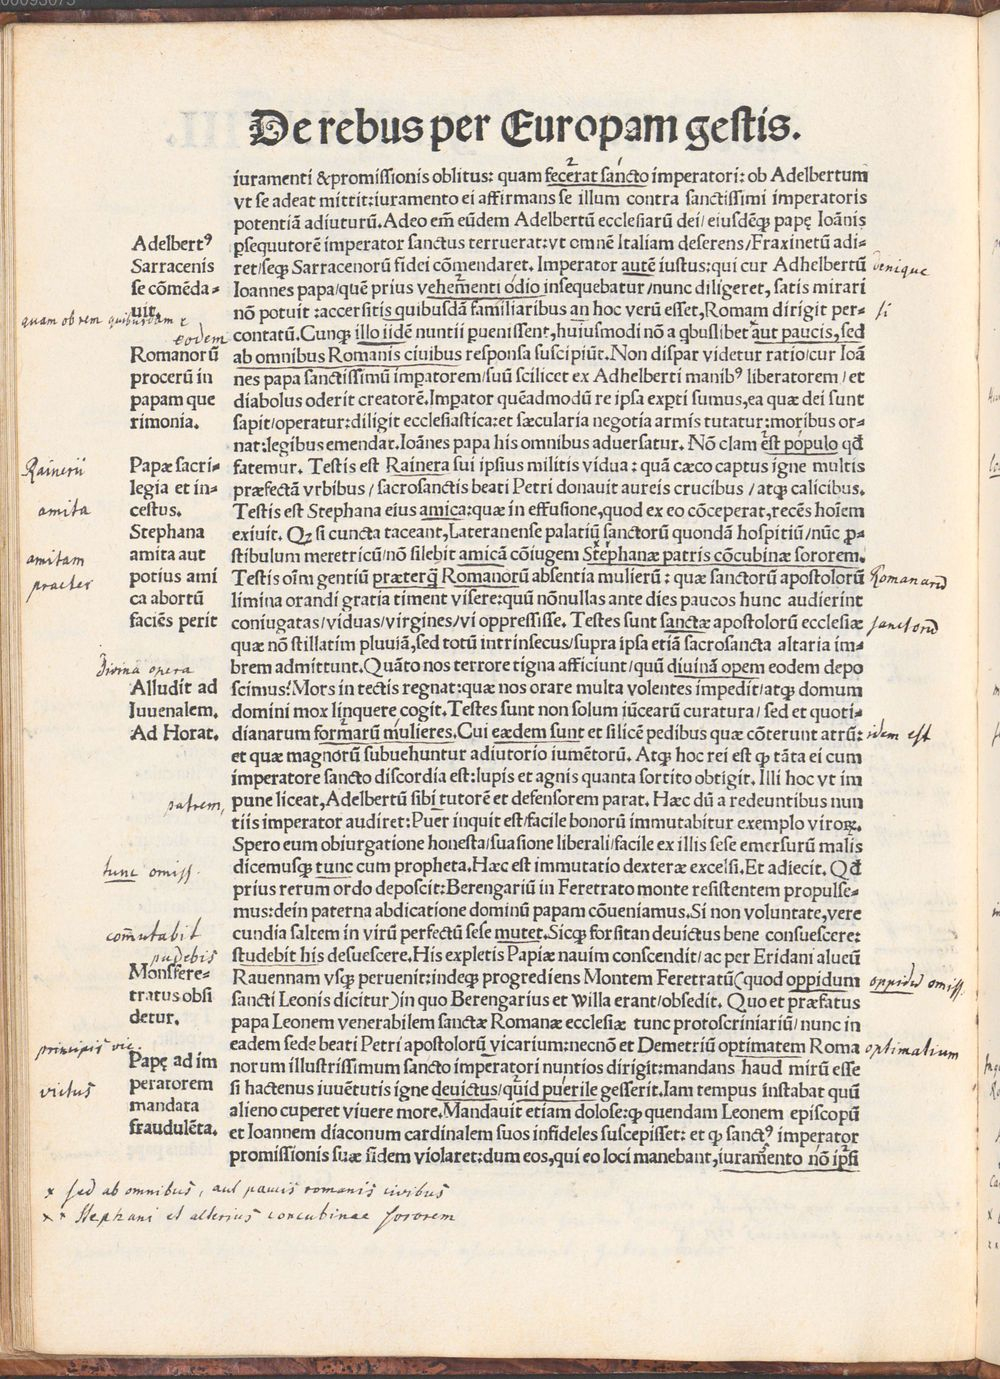 De rebus per Europam gestis.
iuramenti &promissionis oblitus: quam fecerat sancto imperatori: ob Adelbertum
vt se adeat mittit:iuramento ei affirmans se illum contra sanctissimi imperatoris
potentiā adiuturū.Adeo em̄ eūdem Adelbertū ecclesiarū dei/eiusdēqꝫ papę Ioānis
ꝑsequutorē imperator sanctus terruerat:vt omnē Italiam deserens/Fraxinetū adi-
ret/seqꝫ Sarracenorū fidei cōmendaret. Imperator autē iustus:qui cur Adhelbertū
Ioannes papa/quē prius vehemēnti odio insequebatur/nunc diligeret, satis mirari
nō potuit :accersitis quibusdā familiaribus an hoc verū esset,Romam dirigit per-
contatū.Cunqꝫ illo iidē nuntii ꝑuenissent,huiusmodi nō a qbuslibet aut paucis,sed
ab omnibus Romanis ciuibus responsa suscipiūt.Non dispar videtur ratio/cur Ioā
nes papa sanctissimū imꝑatorem/suū scilicet ex Adhelberti manibꝰ liberatorem/et
diabolus oderit creatorē.Imꝑator quēadmodū re ipsa exꝑti sumus,ea quæ dei sunt
sapit/operatur:diligit ecclesiastica:et sæcularia negotia armis tutatur:moribus or-
nat:legibus emendat.Ioānes papa his omnibus aduersatur. Nō clam est populo qd
fatemur. Testis est Rainera sui ipsius militis vidua: quā cæco captus igne multis
præfectā vrbibus/sacrosanctis beati Petri donauit aureis crucibus/atqꝫ calicibus.
Testis est Stephana eius amica:quæ in effusione,quod ex eo cōceperat,recēs hoīem
exiuit. Qꝫ si cuncta taceant,Lateranense palatiū sanctorū quondā hospitiū/nūc ꝓ-
stibulum meretricū/nō silebit amicā cōiugem Stephanæ patris cōcubinæ sororem.
Testis oīm gentiū præterqꝫ Romanorū absentia mulierū: quæ sanctorū apostolorū
limina orandi gratia timent visere:quū nōnullas ante dies paucos hunc audierint
coniugatas/viduas/virgines/vi oppressisse. Testes sunt sanctæ apostolorū ecclesiæ
quæ nō stillatim pluuiā,sed totū intrinsecus/supra ipsa etiā sacrosancta altaria im-
brem admittunt.Quāto nos terrore tigna afficiunt/quū diuinā opem eodem depo
scimus?Mors in tectis regnat:quæ nos orare multa volentes impedit/atqꝫ domum
domini mox linquere cogit.Testes sunt non solum iūcearū curatura/sed et quoti-
dianarum formarū mulieres.Cui eædem sunt et silicē pedibus quæ cōterunt atrū:
et quæ magnorū subuehuntur adiutorio iumētorū. Atqꝫ hoc rei est qꝫ tāta ei cum
imperatore sancto discordia est:lupis et agnis quanta sortito obtigit. Illi hoc vt im
pune liceat,Adelbertū sibi tutorē et defensorem parat. Hæc dū a redeuntibus nun
tiis imperator audiret:Puer inquit est/facile bonorū immutabitur exemplo viroꝝ.
Spero eum obiurgatione honesta/suasione liberali/facile ex illis sese emersurū malis
dicemusqꝫ tunc cum propheta.Hæc est immutatio dexteræ excelsi.Et adiecit. Qd
prius rerum ordo deposcit:Berengariū in Feretrato monte resistentem propulse-
mus:dein paterna abdicatione dominū papam cōueniamus.Si non voluntate,vere
cundia saltem in virū perfectū sese mutet.Sicqꝫ forsitan deuictus bene consuescere:
studebit his desuescere.His expletis Papiæ nauim conscendit/ac per Eridani alueū
Rauennam vsqꝫ peruenit:indeqꝫ progrediens Montem Feretratū(quod oppidum
sancti Leonis dicitur)in quo Berengarius et Willa erant/obsedit. Quo et præfatus
papa Leonem venerabilem sanctæ Romanæ ecclesiæ tunc protoscriniariū/nunc in
eadem sede beati Petri apostolorū vicarium:necnō et Demetriū optimatem Roma
norum illustrissimum sancto imperatori nuntios dirigit:mandans haud mirū esse
si hactenus iuuētutis igne deuictus/quid puerile gesserit.Iam tempus instabat quū
alieno cuperet viuere more.Mandauit etiam dolose:qꝫ quendam Leonem episcopū
et Ioannem diaconum cardinalem suos infideles suscepisset: et qꝫ sanctꝰ imperator
promissionis suæ fidem violaret:dum eos,qui eo loci manebant,iuramēnto nō ipsi
Adelbertꝰ
Sarracenis
se cōmēda-
uit.
quam obrem quibusdam
eodem
Romanorū
procerū in
papam que
rimonia.
Rainerii
Papæ sacri-
legia et in-
cestus.
amita
Stephana
amita aut
potius ami
ca abortū
faciēs perit
amitam
praeter
Divina opera
Alludit ad
Iuuenalem.
Ad Horat.
patrem,
tunc omiss.
com̄utabit
pudebis
Monsfere-
tratus obsi
detur.
principis vic.
Papę ad im
peratorem
mandata
fraudulēta.
victus
denique
si
Romanarū
sanctorū
idem est
oppidū omiss.
optimatium
x sed ab omnibus, aut paucis romanis civibus
x x Stephani et alterius concubinae sororem